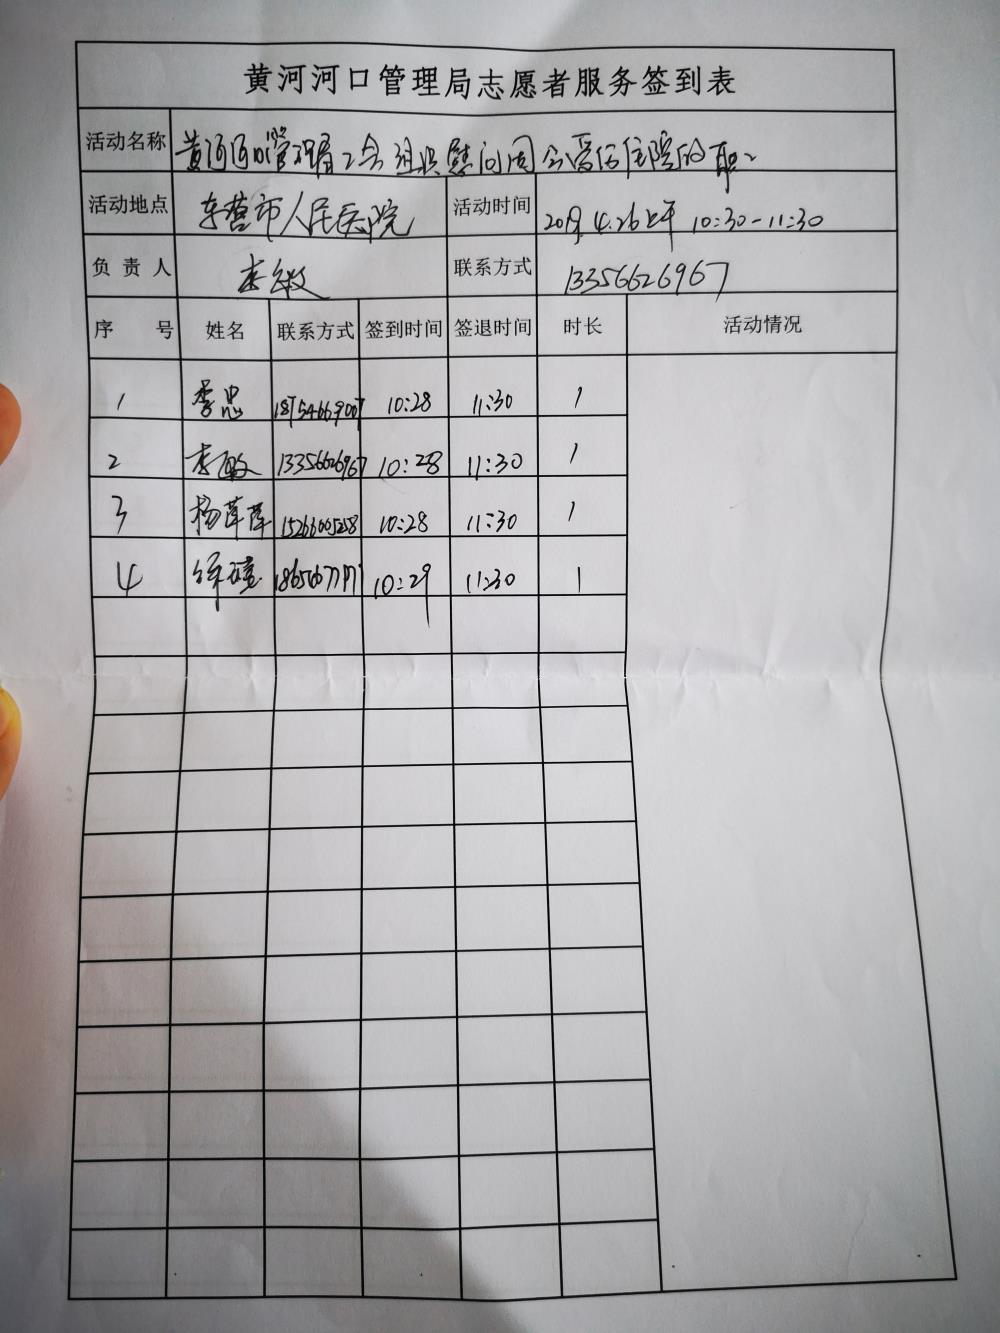 黄河河口管理局志愿者服务签到表
活动名称 黄河河口管理局工会组织慰问因公受伤住院的职工
活动地点 东营市人民医院 活动时间 2019.4.26上午 10:30-11:30
负责人 李敏 联系方式 13356626967
序号 姓名 联系方式 签到时间 签退时间 时长 活动情况
1 李忠 10:28 11:30 1
2 李敏 13356626967 10:28 11:30 1
3 杨萍萍 15266005258 10:28 11:30 1
4 10:29 11:30 1